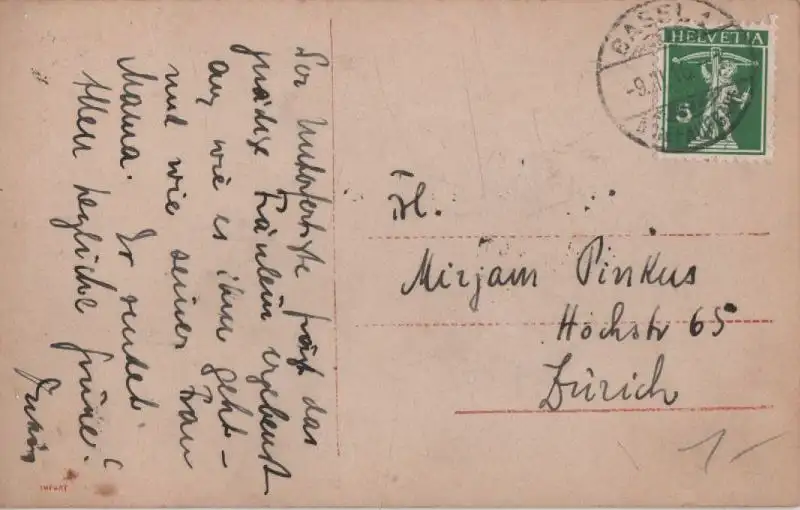 Der Unterfertigte frägt das
gnädige Fräulein ergebenst
an, wie es ihm geht –
und wie seiner Frau
Mama. Er sendet
Allen herzliche Grüsse!
HELVETIA
5
BASEL
-9.III.
Frl.
Mirjam Pinkus
Hochstr 65
Zürich
1-
IMPORT